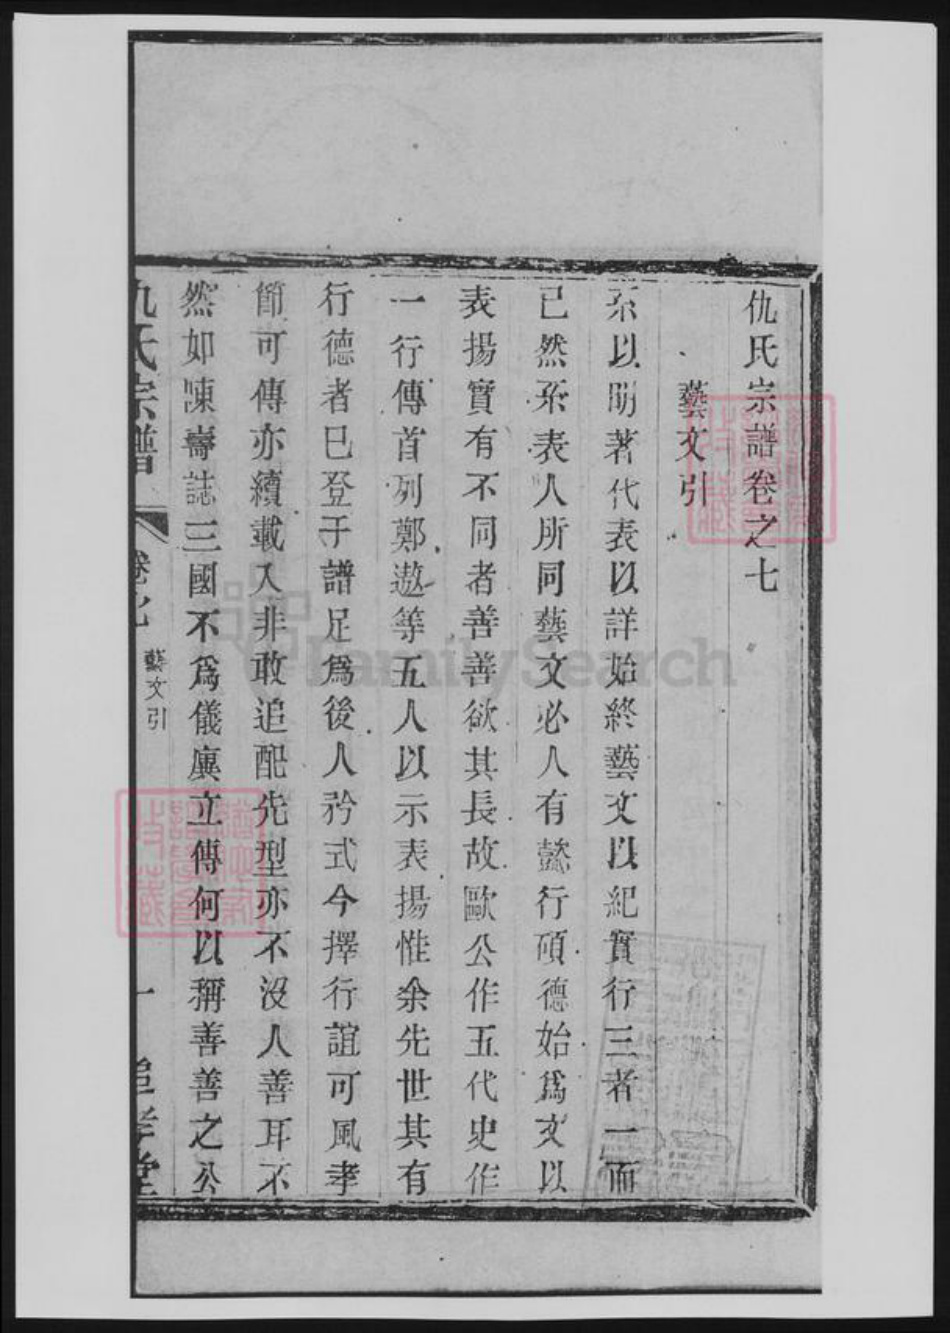 仇氏宗譜卷之七
藝文引
系以明著代表以詳始終藝文以紀實行三者一而
已然系表人所同藝文必人有懿行碩德始爲文以
表揚實有不同者善善欲其長故歐公作五代史作
一行傳首列鄭遨等五人以示表揚惟余先世其有
行德者已登于譜足爲後人矜式今擇行誼可風孝
節可傳亦續載入非敢追配先型亦不沒人善耳不
然如陳壽誌三國不爲儀廙立傳何以稱善善之公
仇氏宗譜
卷之七
藝文引
一
追孝堂
FamilySearch